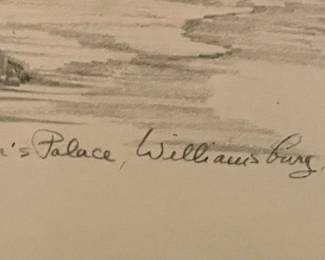 's Palace, Williamsburg,